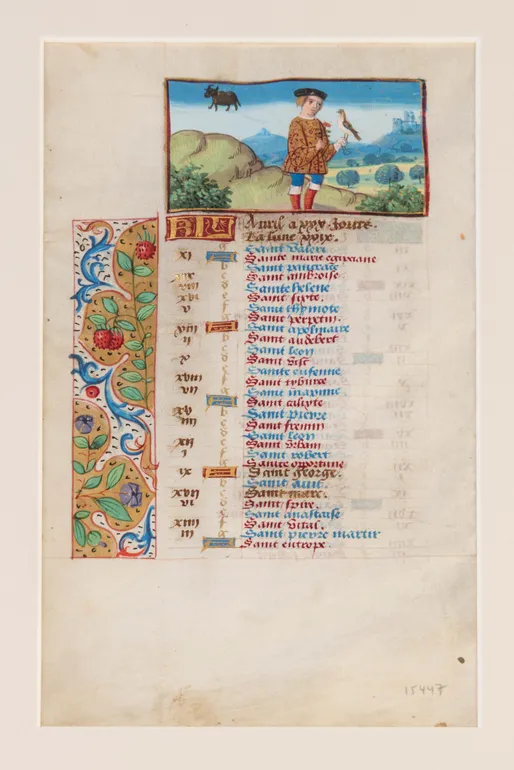 KL Avril a xxx Jours.
La lune xxix.
a Saint valeri
xi b Sainte marie egipciane
c Saint pancrace
xix d Saint ambroise
viii e Sainte helene
xvi f Saint sixte
v g Saint thymote
a Saint perpetin
xiii b Saint apolinaire
ii c Saint audebert
d Saint leon
x e Saint
f Sainte eufemie
xviii g Saint tyburce
vii a Saint
b Saint calixte
xv c Saint pierre
iiii d Saint fremin
e Saint leon
xii f Saint urbain
i g Saint robert
a Sainte oportune
ix b Saint george.
c Saint
xvii d Saint marc.
vi e Saint
f Saint anastaise
xiiii g Saint vital.
iii a Saint pierre martir
Saint eutrope.
15447